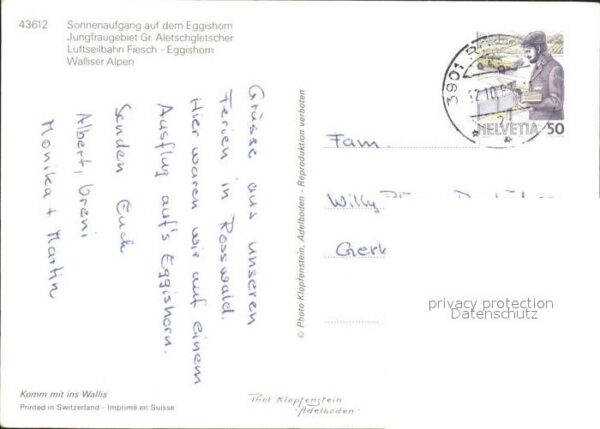 43612
Sonnenaufgang auf dem Eggishorn
Jungfraugebiet Gr. Aletschgletscher
Luftseilbahn Fiesch - Eggishorn
Walliser Alpen
Grüsse aus unseren
Ferien in Rosswald.
Hier waren wir auf einem
Ausflug auf's Eggishorn.
Senden Euch
Albert, Vreni
Monika + Martin
© Photo Klopfenstein, Adelboden - Reproduktion verboten
3901
HELVETIA 50
Fam.
Willy
Gerk
privacy protection
Datenschutz
Komm mit ins Wallis
Printed in Switzerland - Imprimé en Suisse
Phot Klopfenstein
Adelboden